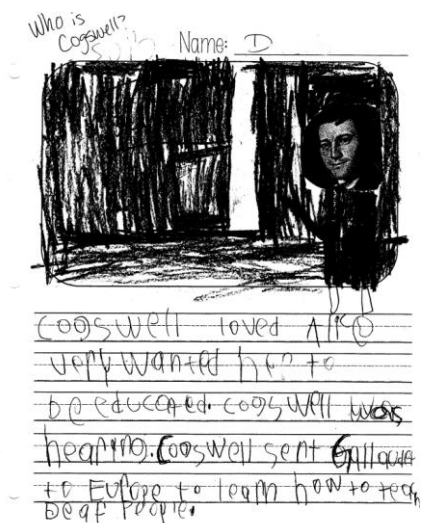 Who is
Cogswell?
Name: D
Cogswell loved Alice
very wanted her to
be educated. cogswell was
hearing. Cogswell sent Gallaudet
to Europe to learn how to teach
Deaf People.